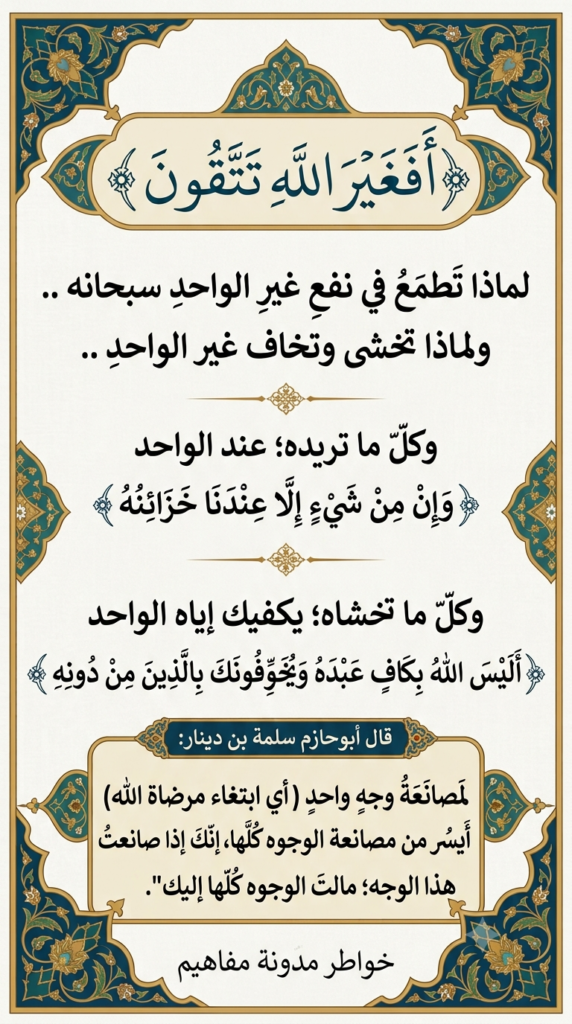 ﴿أَفَغَيْرَ اللَّهِ تَتَّقُونَ﴾
لماذا تَطمَعُ في نفعِ غيرِ الواحدِ سبحانه ..
ولماذا تخشى وتخاف غير الواحدِ ..
وكلّ ما تريده؛ عند الواحد
﴿وَإِنْ مِنْ شَيْءٍ إِلَّا عِنْدَنَا خَزَائِنُهُ﴾
وكلّ ما تخشاه؛ يكفيك إياه الواحد
﴿أَلَيْسَ اللهُ بِكَافٍ عَبْدَهُ وَيُخَوِّفُونَكَ بِالَّذِينَ مِنْ دُونِهِ﴾
قال أبوحازم سلمة بن دينار:
لَمصانَعَةُ وجهٍ واحدٍ (أي ابتغاء مرضاة الله)
أَيسُر من مصانعة الوجوه كُلَّها، إنّكَ إذا صانعتُ
هذا الوجه؛ مالتَ الوجوه كُلّها إليك".
خواطر مدونة مفاهيم